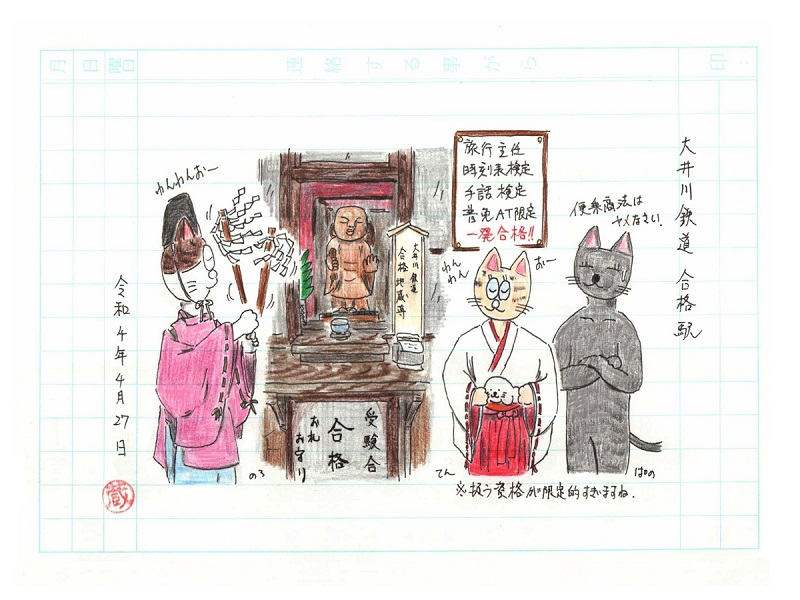 月 日 曜日 連絡する事がら 印:
大井川鉄道 合格駅
便乗商法は
ヤメなさい!
旅行主任
時刻表検定
手話検定
普免AT限定
一発合格!!
わんわんおー
わん
わん
おー
大井川鉄道
合格地蔵尊
受験合
合格
お札
お守り
のろ
てん
ぱの
※扱う資格が限定的すぎますね.
令和4年4月27日
蔵